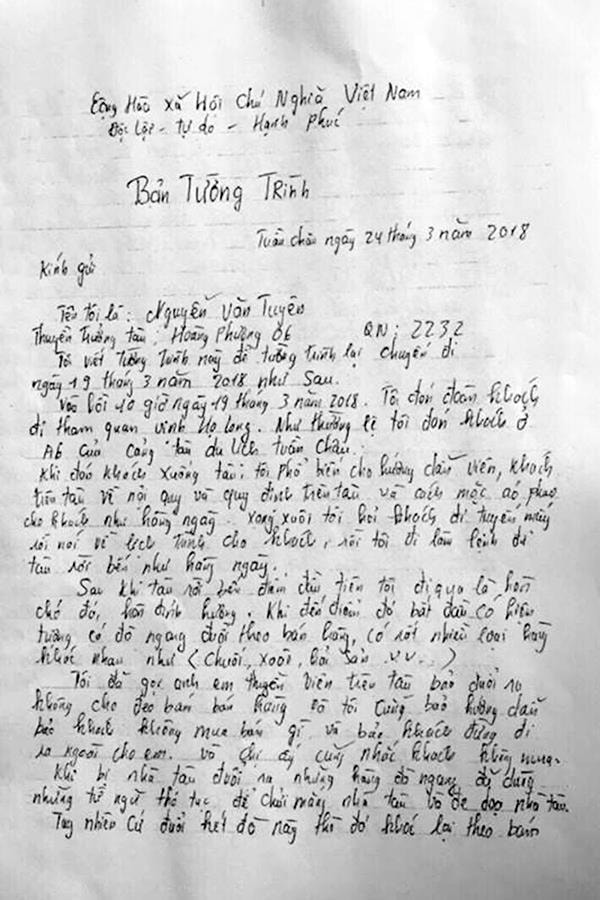 Cộng Hòa xã Hội chủ Nghĩa Việt Nam
Độc lập - tự do - Hạnh phúc
Bản Tường Trình
Tuần châu ngày 24 tháng 3 năm 2018
Kính gửi
Tên tôi là: Nguyễn Văn Tuyên
Thuyền trưởng tàu: Hoàng Phương 06 QN: 2232
Tôi viết tường trình này để tường trình lại chuyến đi
ngày 19 tháng 3 năm 2018 như sau.
Vào hồi 10 giờ ngày 19 tháng 3 năm 2018. Tôi đón đoàn khách
đi tham quan vịnh Hạ long. Như thường lệ tôi đón khách ở
A6 của cảng tàu du lịch tuần châu.
Khi đón khách xuống tàu, tôi phổ biến cho hướng dẫn viên, khách
trên tàu về nội quy và quy định trên tàu và cách mặc áo phao
cho khách như hàng ngày. xong xuôi tôi hỏi khách đi tuyến mấy
rồi nói về lịch trình cho khách, rồi tôi đi làm lệnh để
tàu rời bến như hàng ngày.
Sau khi tàu rời bến điểm đầu tiên tôi đi qua là hòn
chó đá, hòn đỉnh hương. Khi đến điểm đó bắt đầu có hiện
tượng có đò ngang đuổi theo bán hàng, có rất nhiều loại hàng
khác nhau như (chuối, xoài, hải sản v.v...)
Tôi đã gọi anh em thuyền viên trên tàu bảo đuổi ra
không cho đeo bám bán hàng và tôi cũng bảo hướng dẫn
bảo khách không mua bán gì và bảo khách đừng đi
ra ngoài cho em. và chị ấy cũng nhắc khách không mua.
Khi bị nhà tàu đuổi ra những hàng đò ngang đã dùng
những từ ngữ thô tục để chửi mắng nhà tàu và đe dọa nhà tàu.
Tuy nhiên cứ đuổi hết đò này thì đò khác lại theo bám